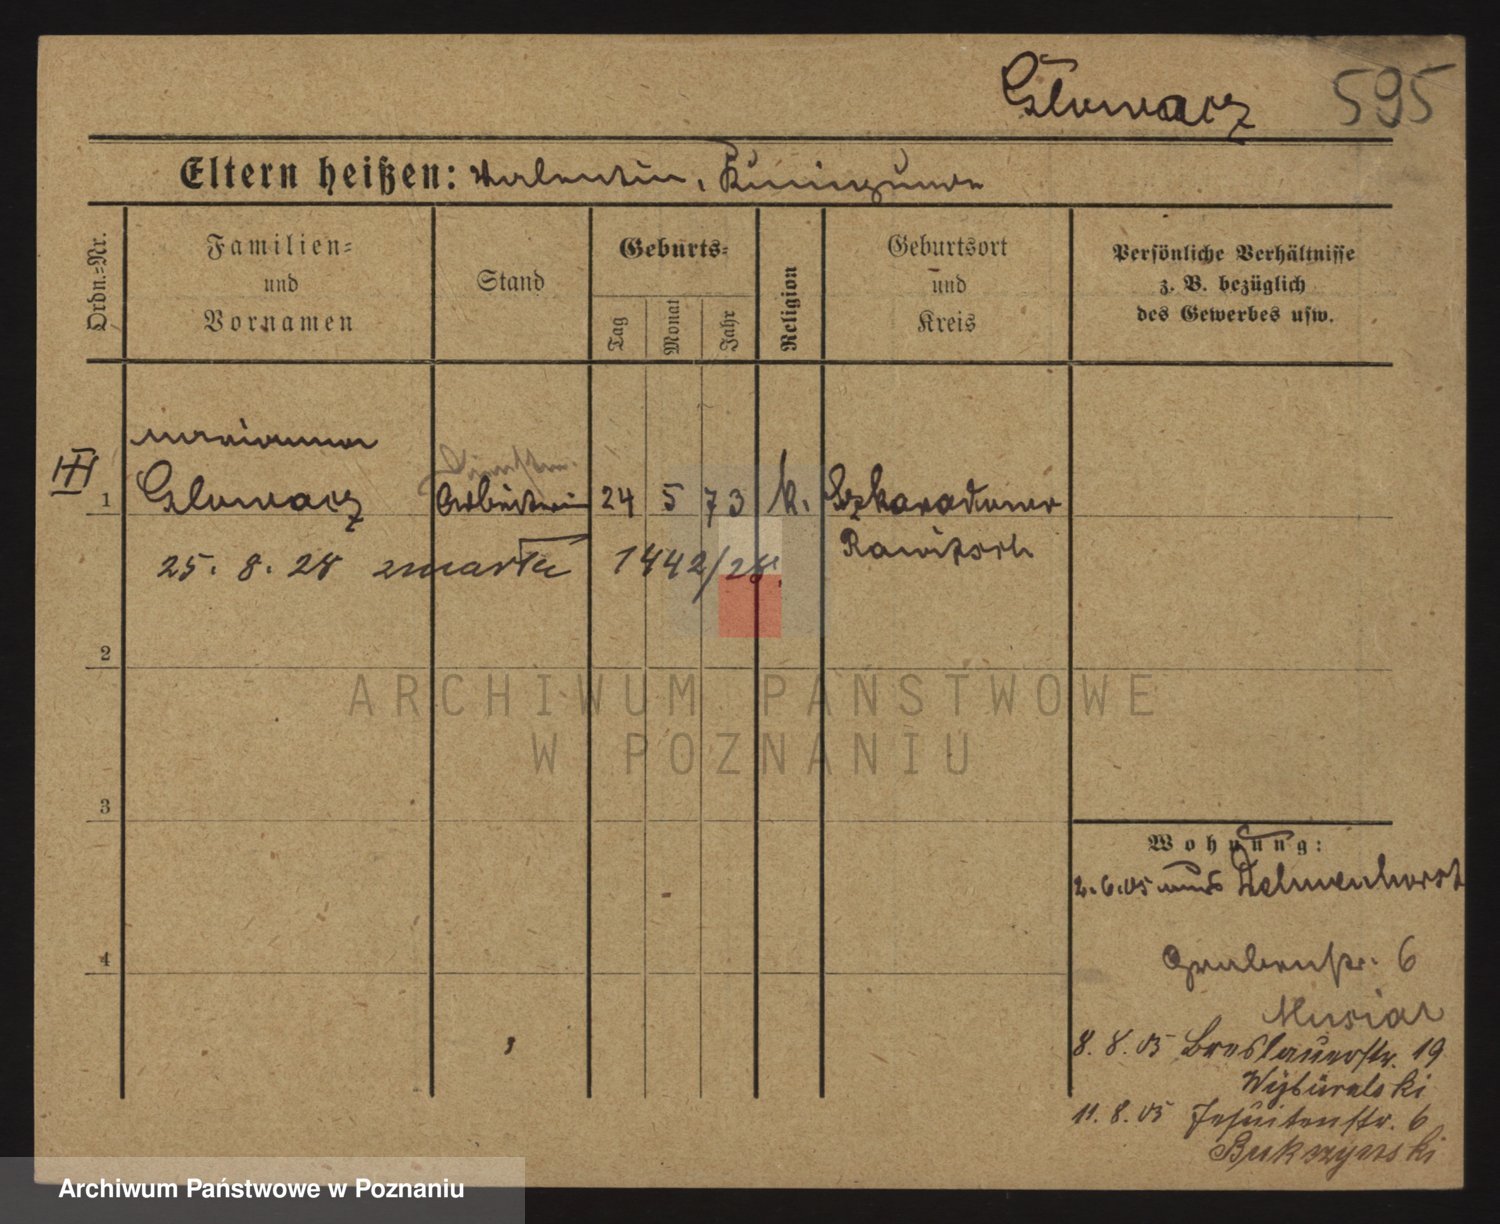 Glowacz 595
Eltern heißen: Valentin, Kunigunde
Ordn.=Nr.
Familien=
und
Vornamen
Stand
Geburts=
Tag
Monat
Jahr
Religion
Geburtsort
und
Kreis
Persönliche Verhältnisse
z. B. bezüglich
des Gewerbes usw.
Marianna
III
1 Glowacz Arbeiterin 24 5 73 k. Szkaradowo
Rawitsch
25. 8. 28 zmarła 1442/28.
2
ARCHIWUM PAŃSTWOWE
W POZNANIU
3
Wohnung:
2.6.05 aus Delmenhorst
4
Grabenstr. 6
Musial
8. 8. 05 Breslauerstr. 19
Wybieralski
11. 8. 05 Jesuitenstr. 6
Bukczynski
Archiwum Państwowe w Poznaniu